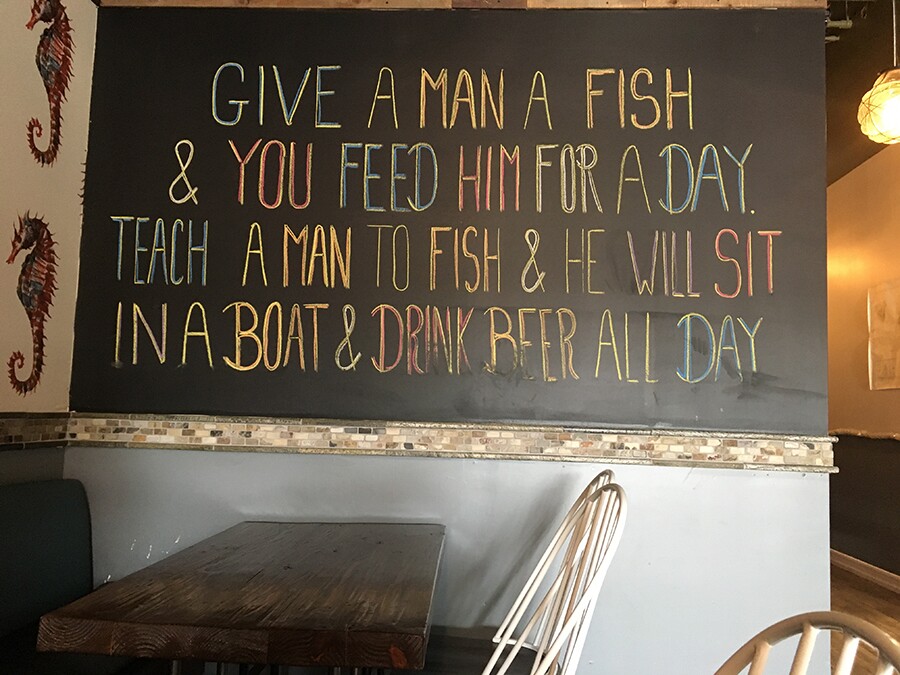 GIVE A MAN A FISH
& YOU FEED HIM FOR A DAY.
TEACH A MAN TO FISH & HE WILL SIT
IN A BOAT & DRINK BEER ALL DAY